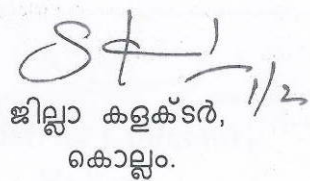 1/2
ജില്ലാ കളക്ടർ,
കൊല്ലം.